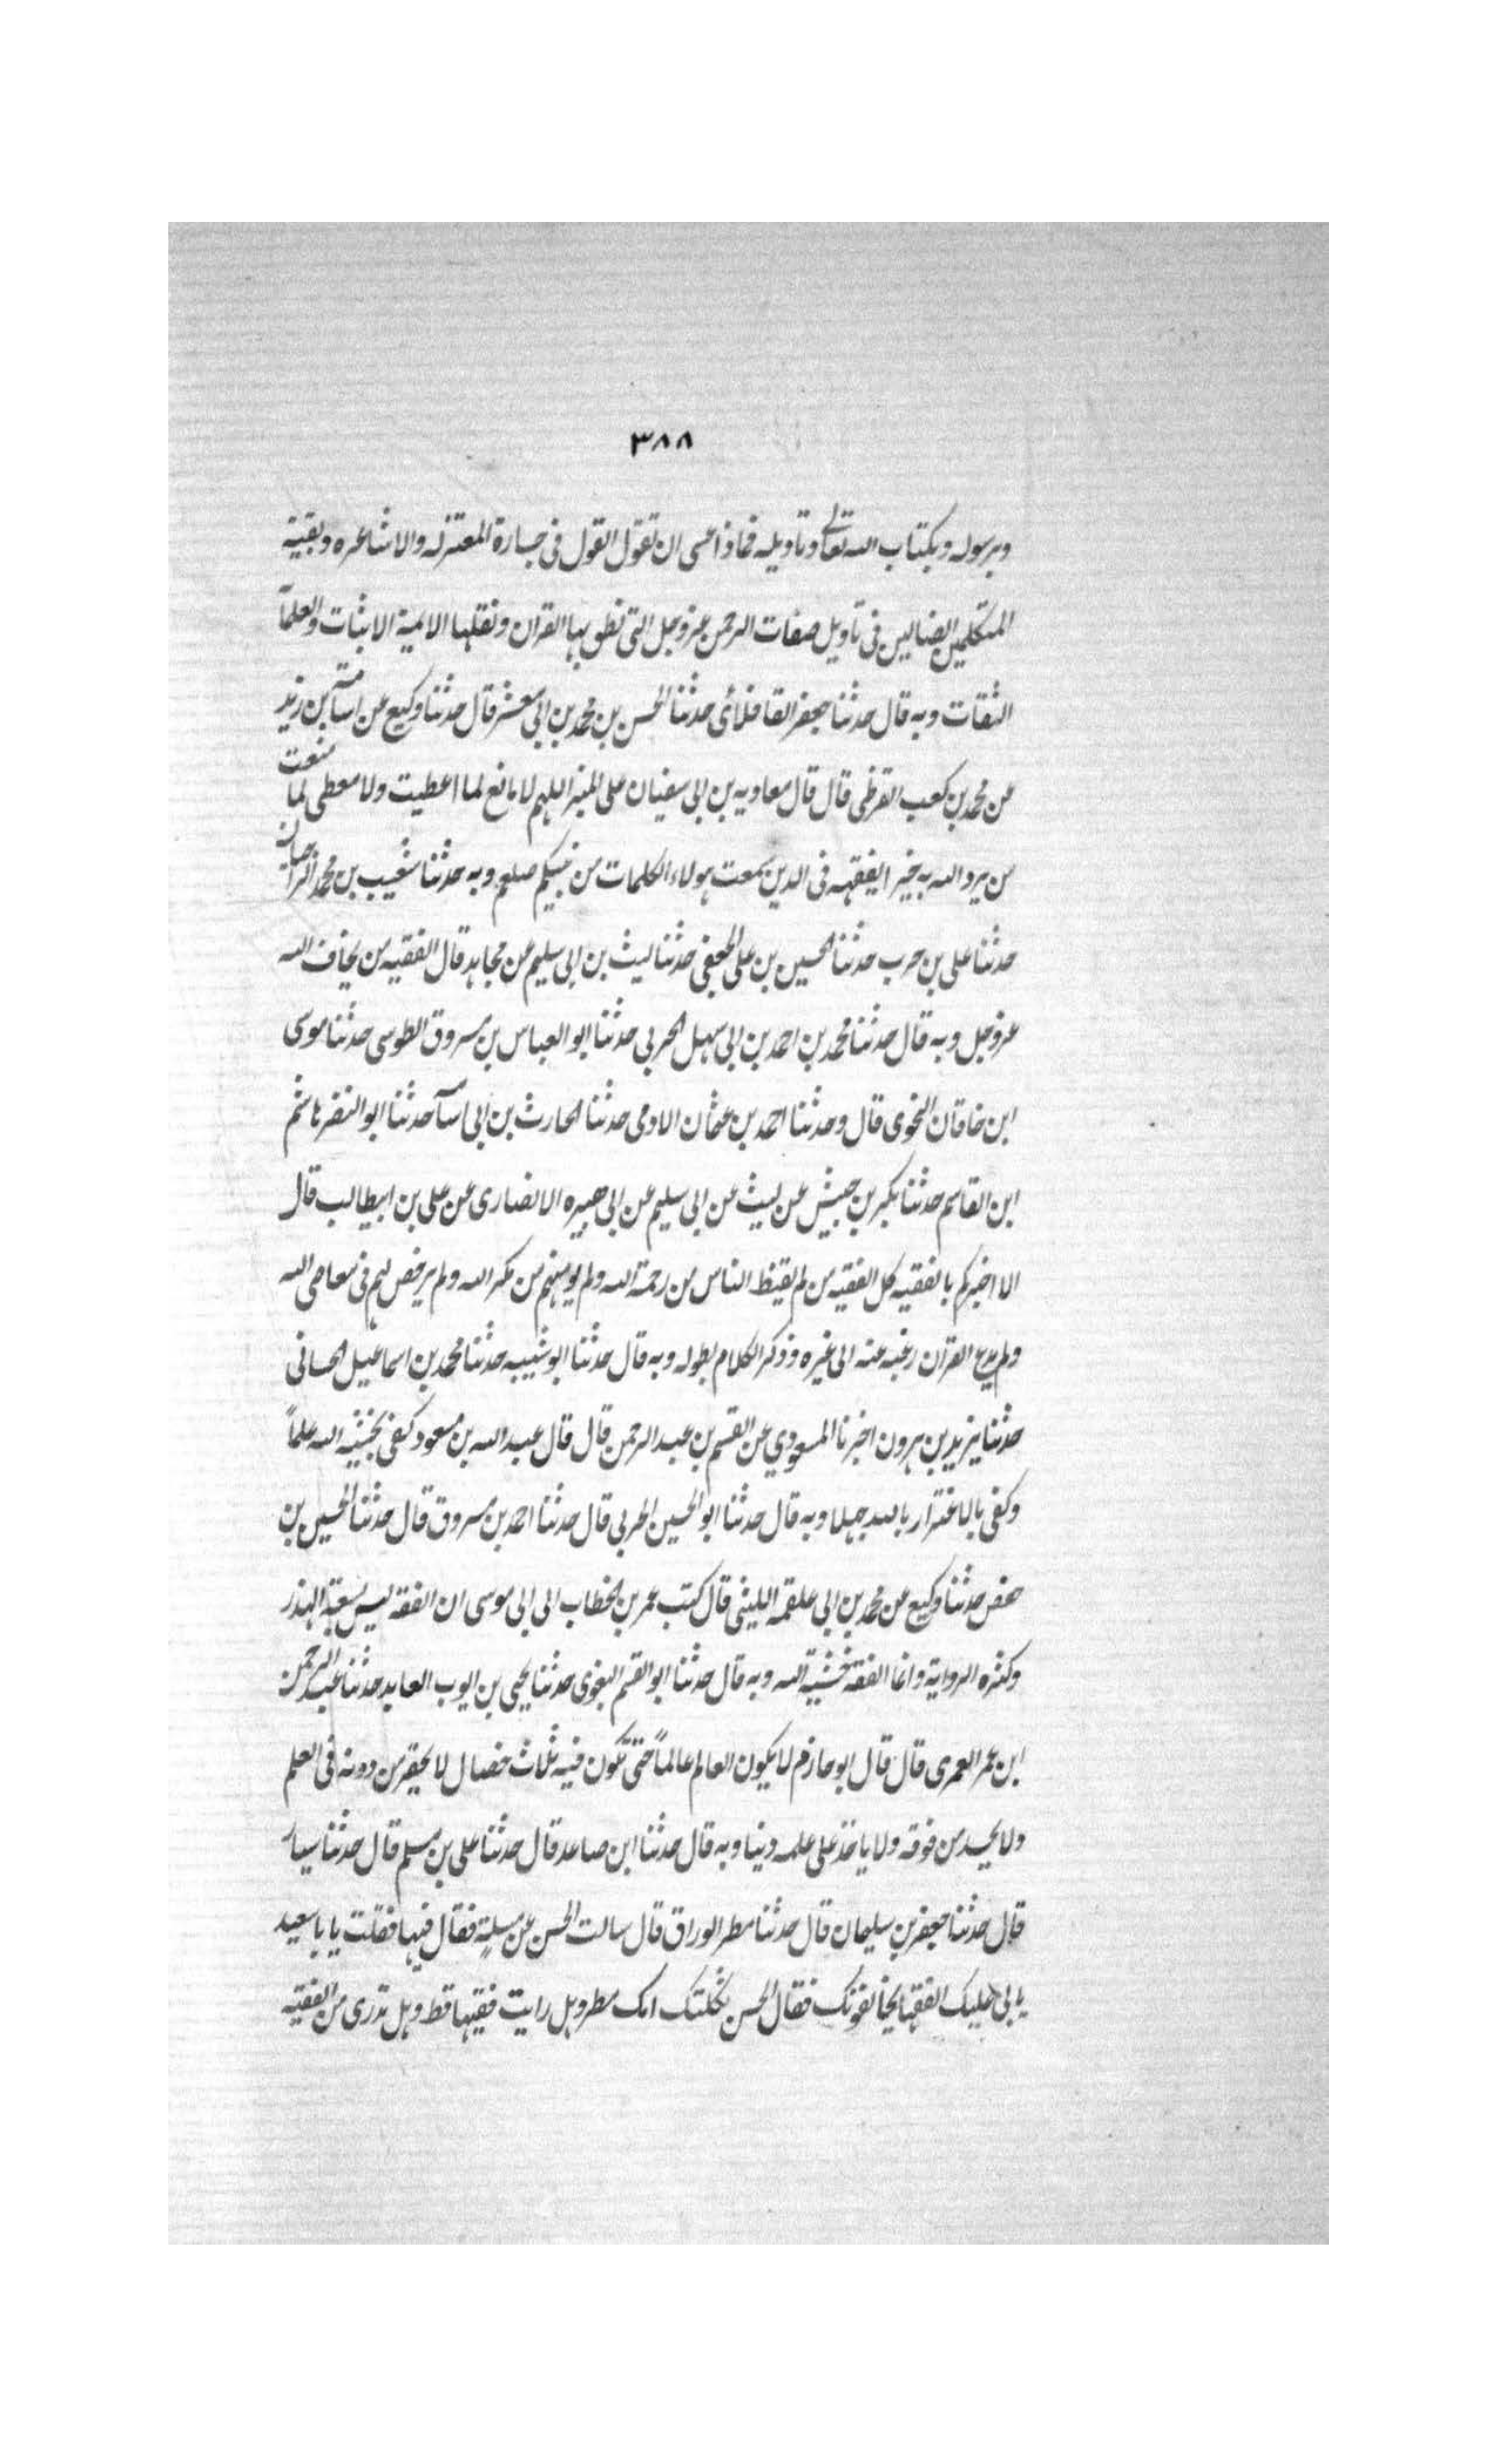 ٣٨٨
وبرسوله وبكتاب الله تعالى وتاويله فماذا عسى ان تقول القول فى جسارة المعتزله والاشاعره وبقية
المتكلمين الضالين فى تاويل صفات الرحمن عزوجل التى نطق بها القران ونقلها الايمة الاثبات والعلمآ
الثقات وبه قال حدثنا جعفر القافلائى حدثنا الحسن بن محمد بن ابى معشر قال حدثنا وكيع عن اسآمة بن زيد
عن محمد بن كعب القرظى قال قال معاويه بن ابى سفيان على المنبر اللهم لا مانع لما اعطيت ولا معطى لما منعت
من يرد الله به خيرا يفقهه فى الدين سمعت هولاء الكلمات من نبيكم صلعم وبه حدثنا شعيب بن محمد
حدثنا على بن حرب حدثنا الحسين بن على الجعفى حدثنا ليث بن ابى سليم عن مجاهد قال الفقيه من يخاف الله
عزوجل وبه قال حدثنا محمد بن احمد بن ابى سهل الحربى حدثنا ابو العباس بن مسروق الطوسى حدثنا موسى
ابن خاقان النحوى قال وحدثنا احمد بن عثمان الادمى حدثنا الحارث بن ابى اسآمة حدثنا ابو النضر هاشم
ابن القاسم حدثنا بكر بن حبيش عن ليث عن ابى سليم عن ابى هبيره الانصارى عن على بن ابيطالب قال
الا اخبركم بالفقيه كل الفقيه من لم يقنط الناس من رحمة الله ولم يومنهم من مكر الله ولم يرخص لهم فى معاصى الله
ولم يدع القران رغبه عنه الى غيره وذكر الكلام بطوله وبه قال حدثنا ابو شيبه حدثنا محمد بن اسماعيل الحسانى
حدثنا يزيد بن هرون اخبرنا المسعودي عن القسم بن عبد الرحمن قال قال عبد الله بن مسعود كفى بخشية الله علماً
وكفى بالاغترار بالله جهلا وبه قال حدثنا ابو الحسين الحربى قال حدثنا احمد بن مسروق قال حدثنا الحسين بن
حفص حدثنا وكيع عن محمد بن ابى علقمه الليثى قال كتب عمر بن الخطاب الى ابى موسى ان الفقه ليس بسعة الهذر
وكثره الرواية وانما الفقه خشية الله وبه قال حدثنا ابو القسم البغوى حدثنا يحيى بن ايوب العابد حدثنا عبد الرحمن
ابن عمر العمرى قال قال ابو حازم لا يكون العالم عالماً حتى تكون فيه ثلاث خصال لا يحقر من دونه فى العلم
ولا يحسد من فوقه ولا ياخذ على علمه دنيا وبه قال حدثنا ابن صاعد قال حدثنا على بن مسلم قال حدثنا سيار
قال حدثنا جعفر بن سليمان قال حدثنا مطر الوراق قال سالت الحسن عن مسلة فقال فيها فقلت يا با سعيد
يابى عليك الفقها يخالفونك فقال الحسن ثكلتك امك مطر وهل رايت فقيها قط وهل تدرى من الفقيه